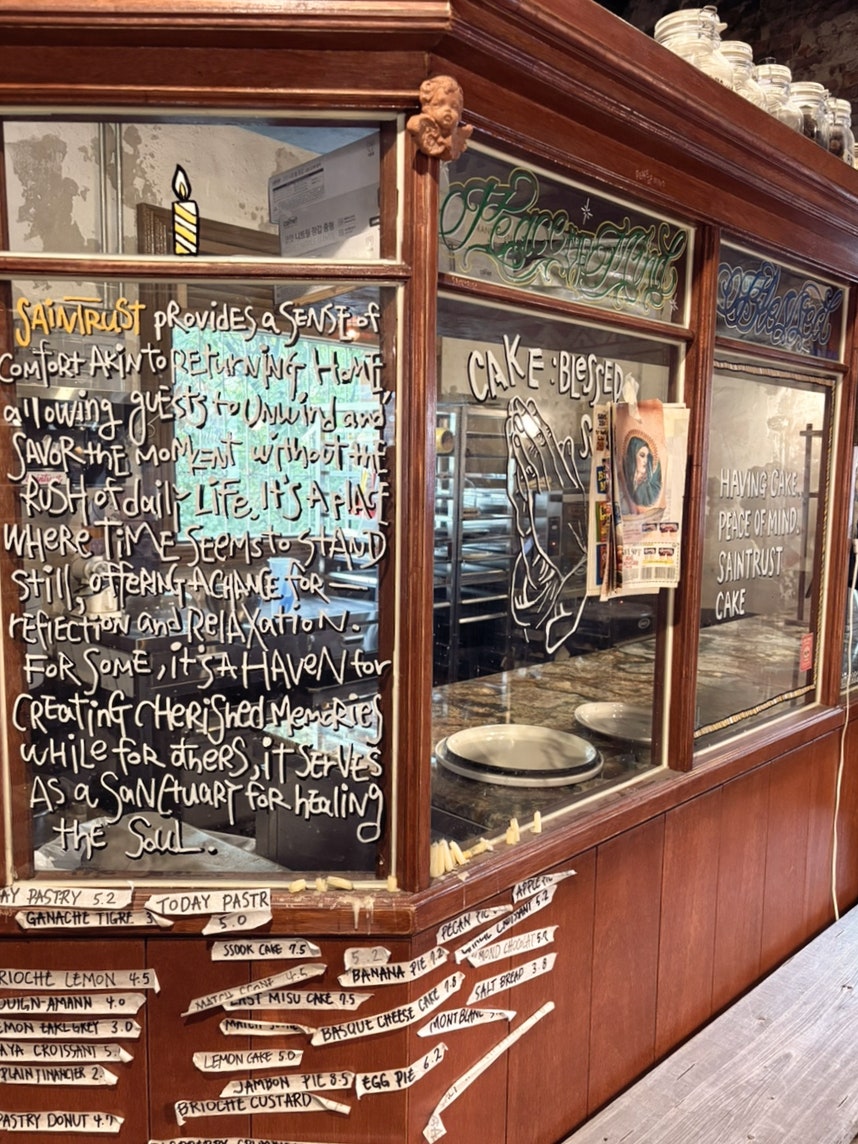 SAINTRUST PROVIDES a SENSE of
COMFORT AKIN to RETURNING HOME,
allowing guests to UNWIND and
SAVOR THE MOMENT without the
RUSH of daily LIFE. It's A PLACE
WHERE TIME SEEMS to STAND
Still, offering A CHANCE FOR
REFLECTION and RELAXATION.
FOR SOME, it's A HAVEN for
CREATING CHERISHED MEMORIES
WHILE for others, it SERVES
AS a SANCTUARY for healing
the SOUL.
Peace of Mind
Blessed
CAKE : BLESSED
HAVING CAKE,
PEACE OF MIND,
SAINTRUST
CAKE
AY PASTRY 5.2
TODAY PASTR
5.0
GANACHE TIGRE 3
SSOOK CAKE 7.5
RIOCHE LEMON 4.5
OUIGN-AMANN 4.0
EMON EARLGREY 3.0
AYA CROISSANT 5.
PLAIN FINANCIER 2.
PASTRY DONUT 4.7
4.5
MISU CAKE 7.5
LEMON CAKE 5.0
JAMBON PIE 8.5
BRIOCHE CUSTARD
5.2
BANANA PIE 7.2
BASQUE CHEESE CAKE 7.8
EGG PIE 6.2
APPLE PIE
PECAN PIE
CROISSANT 5.2
MOND CHOCOLAT 5.2
SALT BREAD 3.8
MONTBLANC